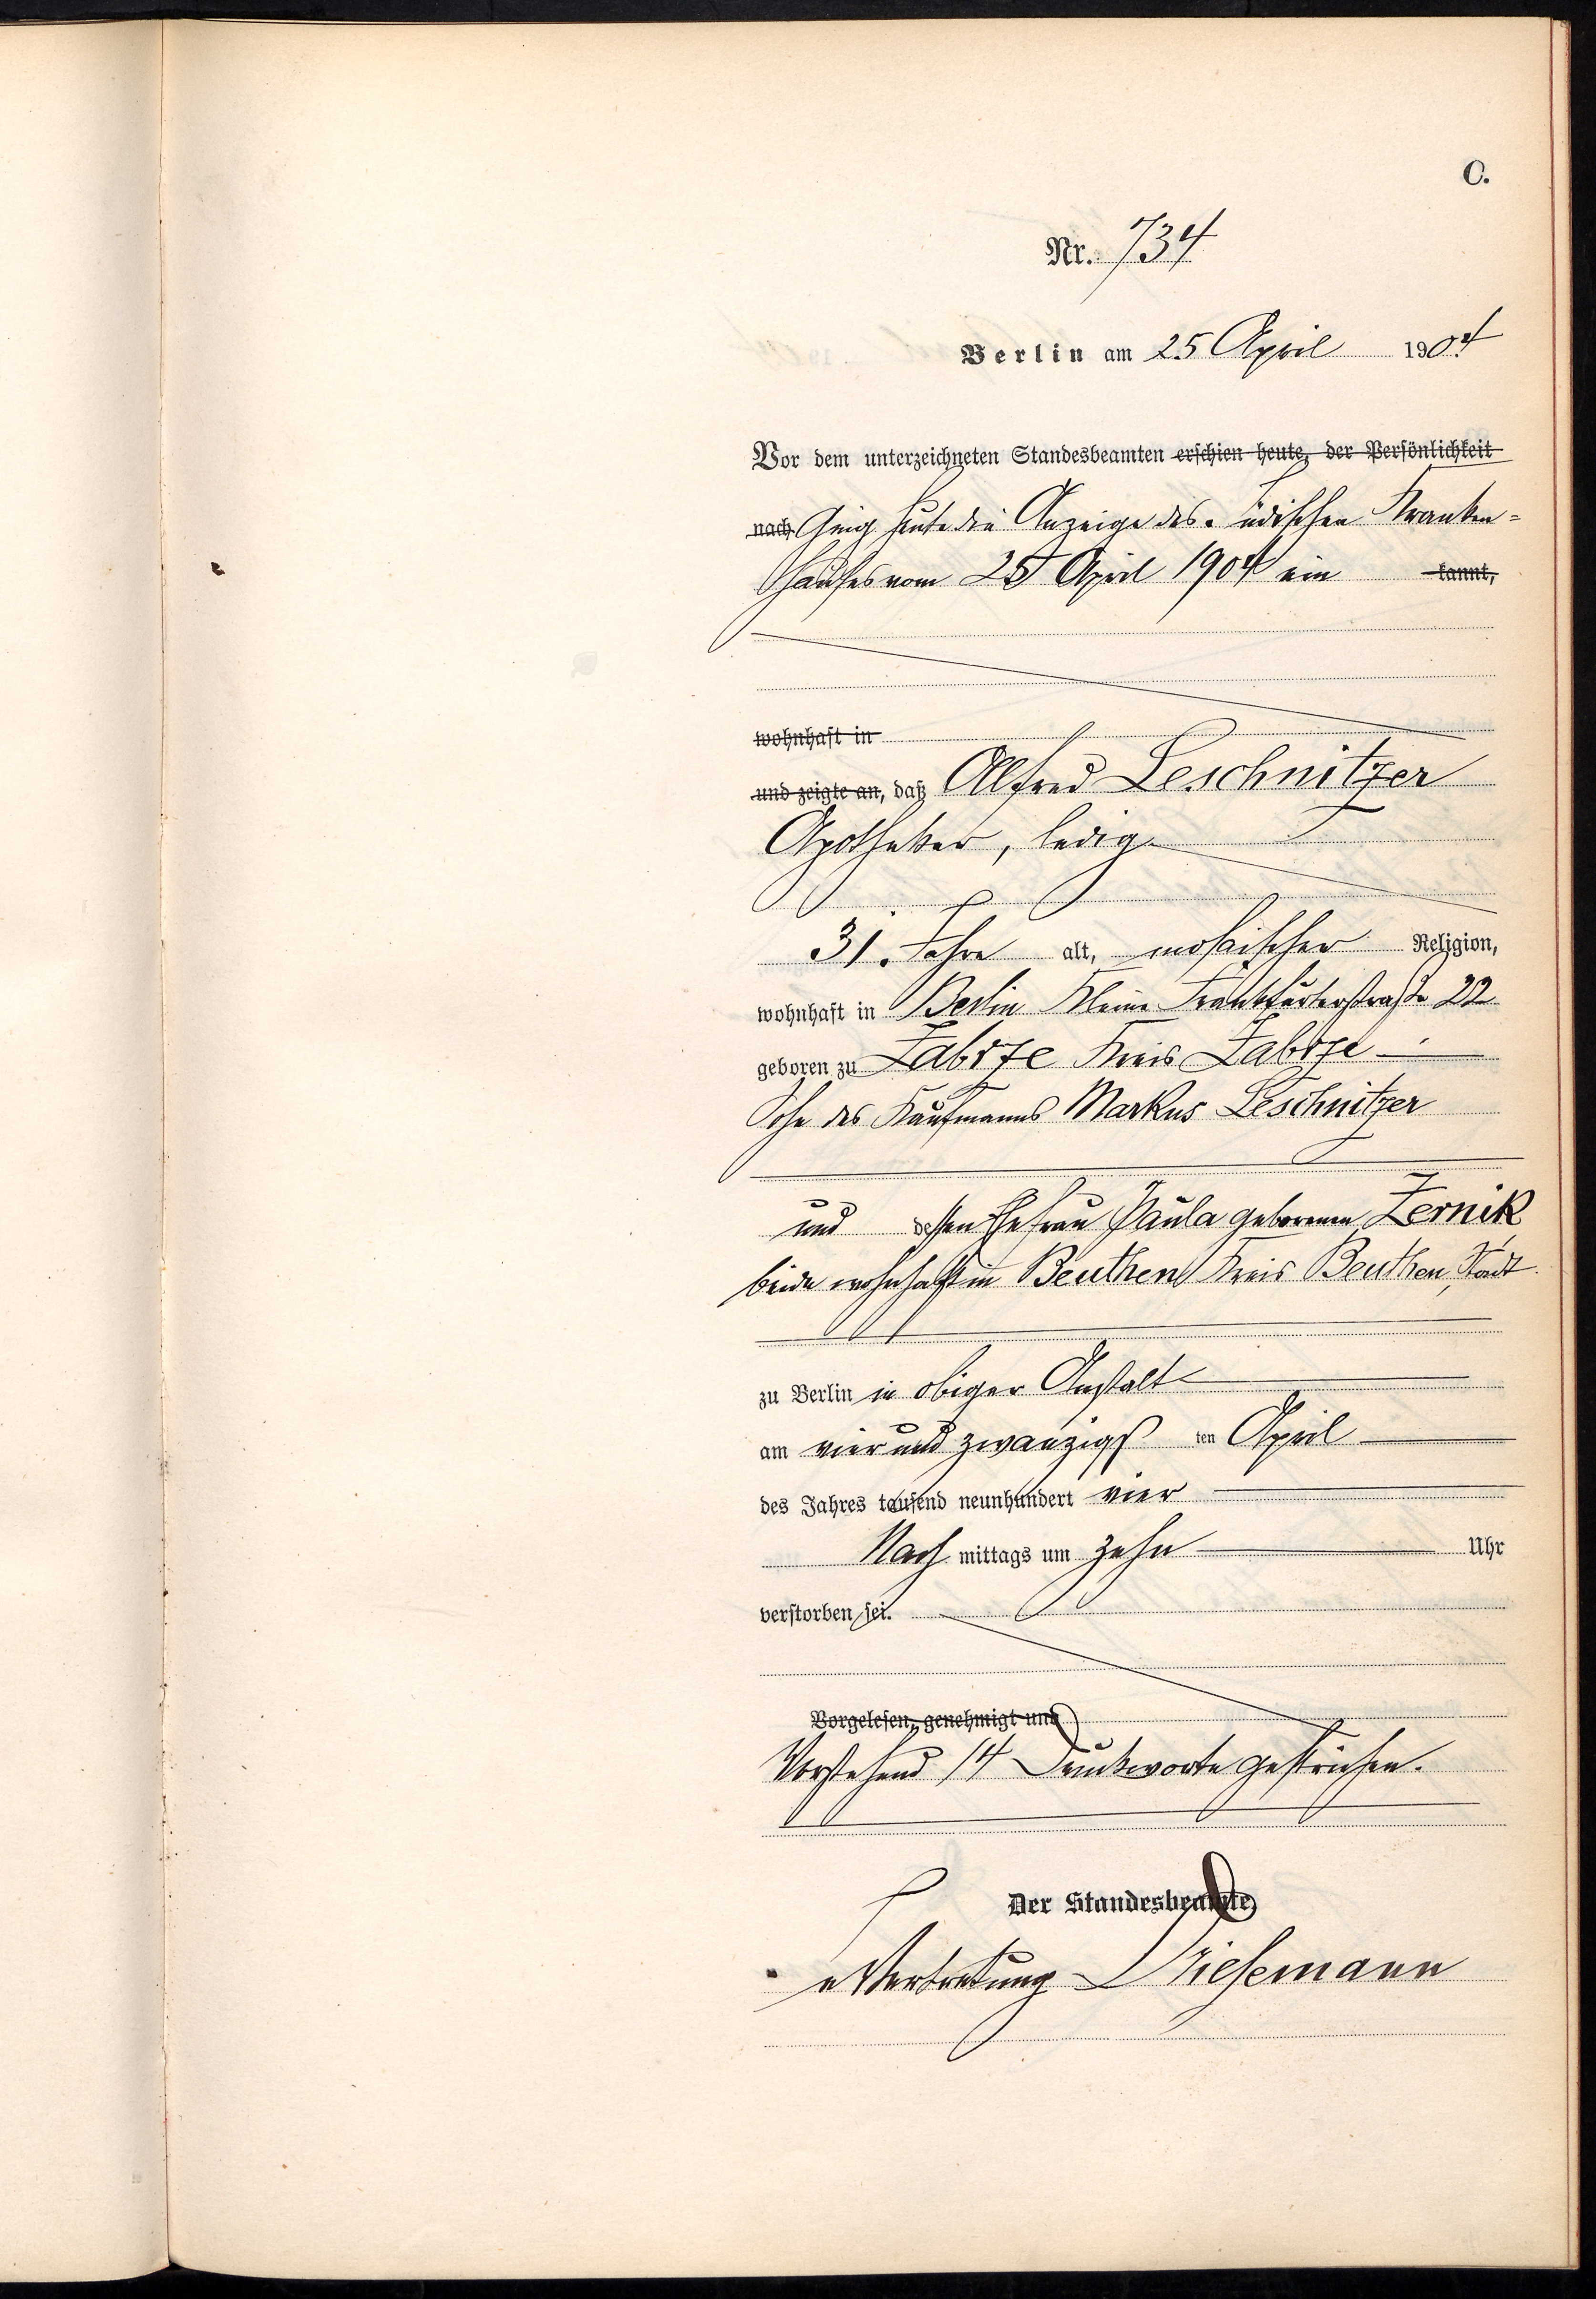 C.
Nr. 734
Berlin am 25 April 1904
Vor dem unterzeichneten Standesbeamten erschien heute, der Persönlichkeit
nach Ging heute die Anzeige des Jüdischen Kranken=
hauses vom 25 April 1904 ein kannt,
wohnhaft in
und zeigte an, daß Alfred Leschnitzer
Apotheker, ledig
31 Jahre alt, mosaischer Religion,
wohnhaft in Berlin Kleine Frankfurterstraße 22
geboren zu Zabrze Kreis Zabrze
Sohn des Kaufmanns Markus Leschnitzer
und dessen Ehefrau Paula geborenen Zernik
beide wohnhaft in Beuthen Kreis Beuthen, Stadt
zu Berlin in obiger Anstalt
am vier und zwanzigsten April
des Jahres tausend neunhundert vier
Nachmittags um zehn Uhr
verstorben sei.
Vorgelesen, genehmigt und
Vorstehend 14 Druckworte gestrichen.
Der Standesbeamte,
In Vertretung